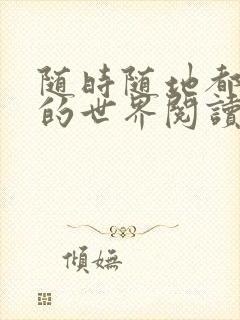 随時随地都
的世界閱讀
傾嫵